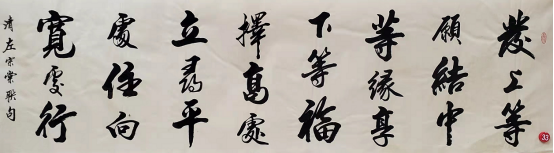 發上等
願結中
等緣享
下等福
擇高處
立尋平
處住向
寬處行
清左宗棠聯句